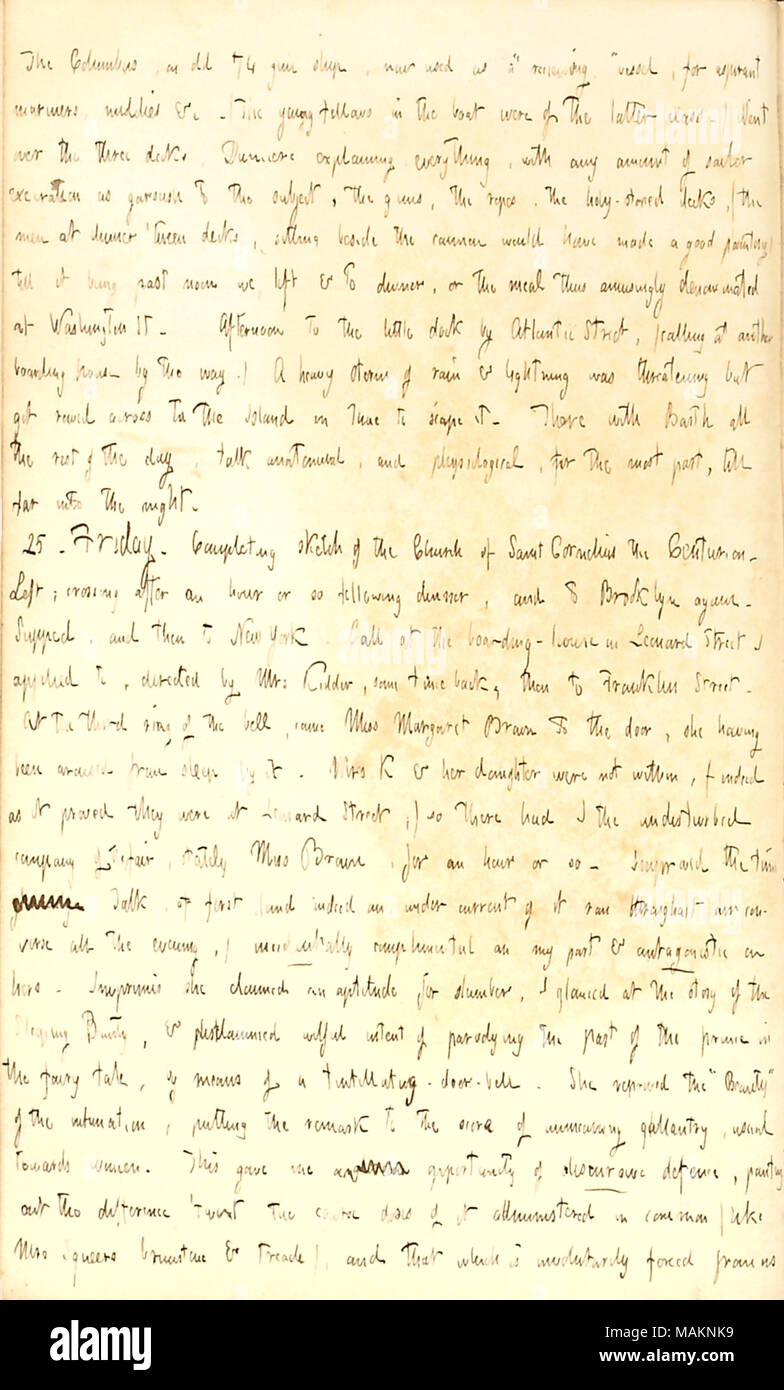 The Columbus, an old 74 gun ship, now used as a "receiving" vessel, for aspirant
mariners, middies &c. (The young fellows in the boat were of the latter class.) Went
over the three decks, Dunsiere explaining everything, with any amount of sailor
execration as garnish to the subject, the guns, the ropes, the holy-stoned decks, (the
men at dinner 'tween decks, sitting beside the cannon would have made a good painting)
till it being past noon we left & to dinner, or the meal thus amusingly denominated
at Washington St. Afternoon to the little dock by Atlantic Street, (calling at another
boarding house by the way.) A heavy storm of rain & lightning was threatening but
got rowed across to the Island in time to scape it. There with Barth all
the rest of the day, talk anatomical, and physiological, for the most part, till
far into the night.
25. Friday. Completing sketch of the Church of Saint Cornelius the Centurion.
Left; crossing after an hour or so following dinner, and to Brooklyn again.
Supped, and then to New York. Call at the boarding-house in Leonard Street I
applied to, directed by Mrs Kidder, some time back, then to Franklin Street.
At the third ring of the bell, came Miss Margaret Brown to the door, she having
been aroused from sleep by it. Mrs K & her daughter were not within, (indeed
as it proved they were at Leonard Street,) so there had I the undisturbed
company of fair, stately Miss Brown, for an hour or so. Improved the time
Talk, at first (and indeed an under current of it ran throughout our con-
verse all the evening,) incidentally complimental on my part & antagonistic on
hers. Imprimis she claimed an aptitude for slumber, I glanced at the story of the
Sleeping Beauty, & disclaimed wilful intent of parodying the part of the prince in
the fairy tale, by means of a tintillating door-bell. She reproved the "Beauty"
of the intimation, putting the remark to the score of unmeaning gallantry, usual
towards women. This gave me an opportunity of discursive defence, pointing
out the difference 'twixt the coarse doses of it administered in common (like
Mrs Squeers brimstone & treacle), and that which is involuntarily forced from us
alamy
Image ID: MAKNK9
www.alamy.com